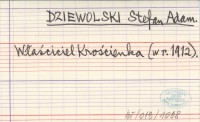 DZIEWOLSKI Stefan Adam.
Właściciel Krościenka (w r. 1912).